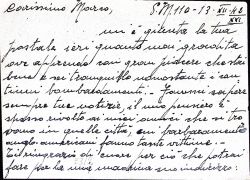 Carissimo Marco, P.M. 110 - 13 - XII - 42
XXI
mi è giunta la tua
postale ieri quanto mai gradita
ove apprendo con gran piacere che stai
bene e sei tranquillo nonostante i con
tinui bombardamenti. - Fammi sapere
sempre tue notizie, il mio pensiero è
spesso rivolto ai miei amici che si tro
vano in quelle città, ove barbaramente
anglo-americani fanno tante vittime. -
Ti ringrazio di cuore per ciò che potrai
fare per la mia macchina